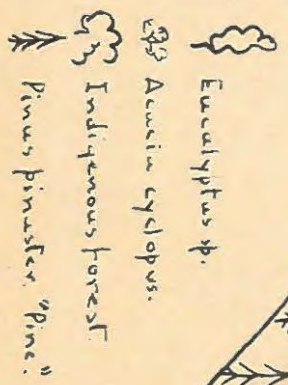 Eucalyptus sp.
Acacia cyclopus.
Indigenous forest.
Pinus pinaster. "Pine."